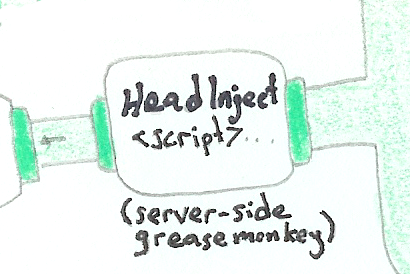 Head Inject
<script>...
(server-side
grease monkey)